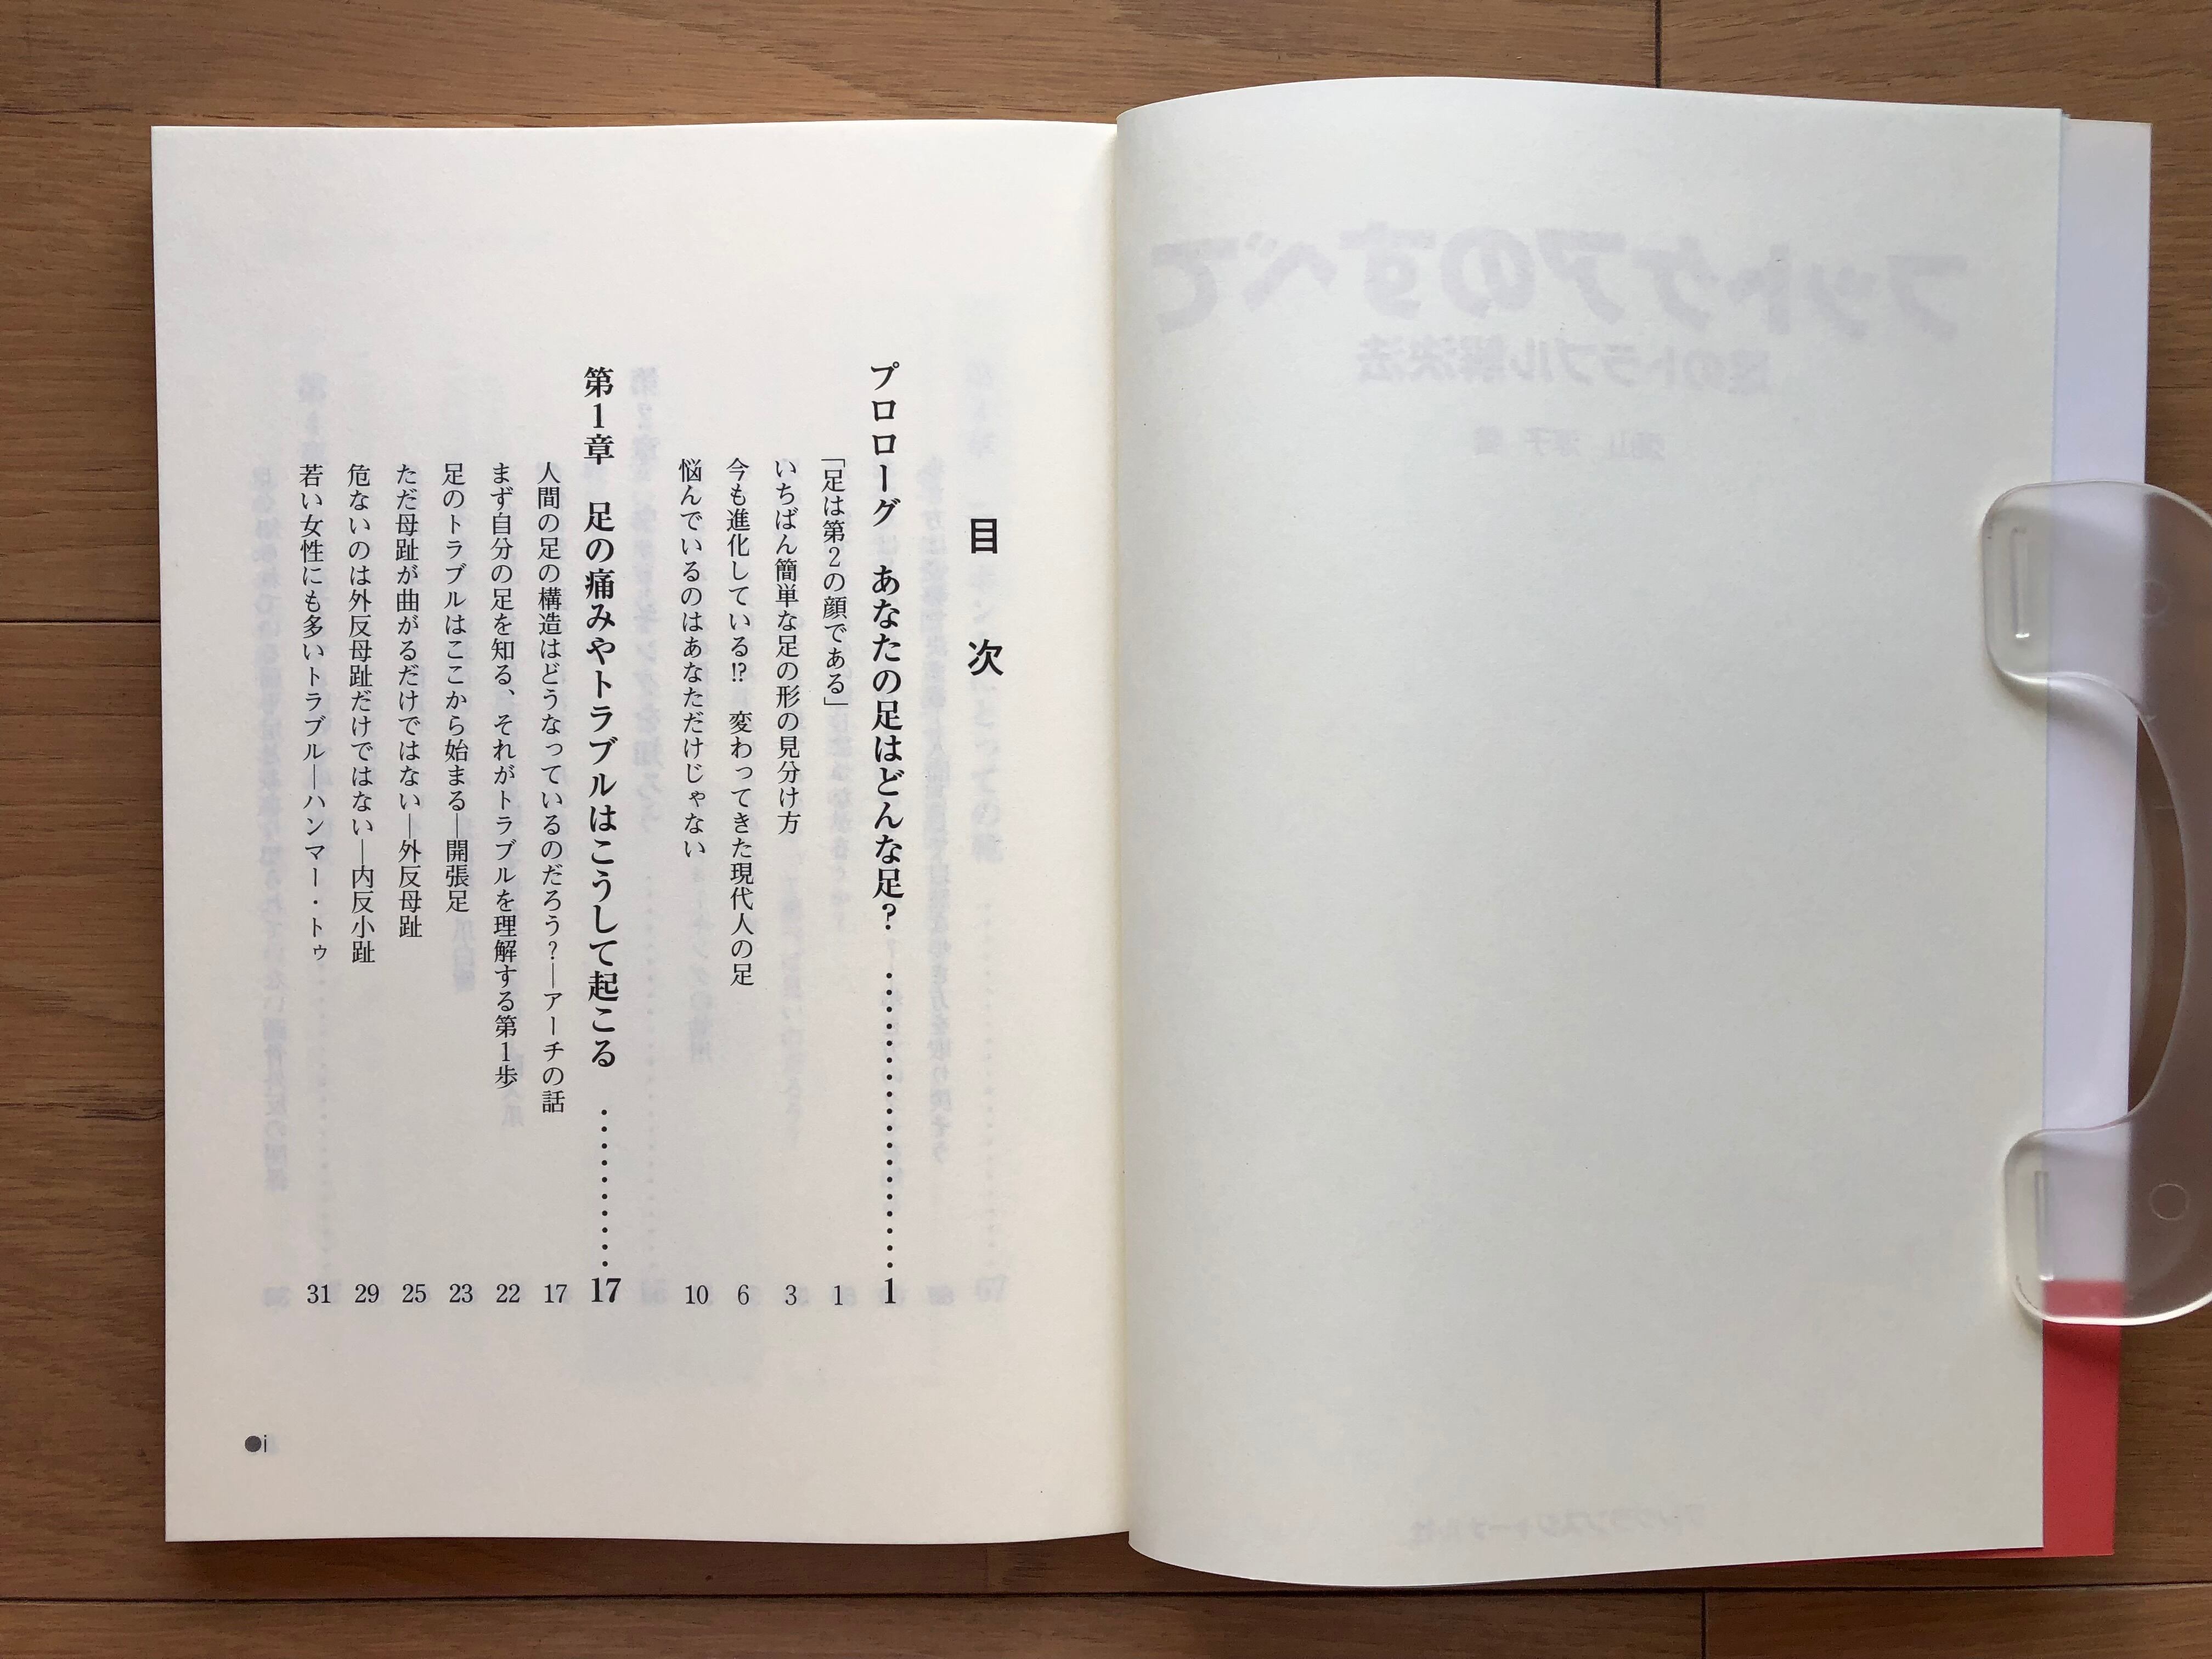 目 次
プロローグ あなたの足はどんな足? ・・・・・・・・・・・・・・・・・・ 1
「足は第2の顔である」 1
いちばん簡単な足の形の見分け方 3
今も進化している!? 変わってきた現代人の足 6
悩んでいるのはあなただけじゃない 10
第1章 足の痛みやトラブルはこうして起こる ・・・・・・・・・・ 17
人間の足の構造はどうなっているのだろう?―アーチの話 17
まず自分の足を知る、それがトラブルを理解する第1歩 22
足のトラブルはここから始まる―開張足 23
ただ母趾が曲がるだけではない―外反母趾 25
危ないのは外反母趾だけではない―内反小趾 29
若い女性にも多いトラブル―ハンマー・トゥ 31
●i
フットケアのすべて
足のトラブル解決法